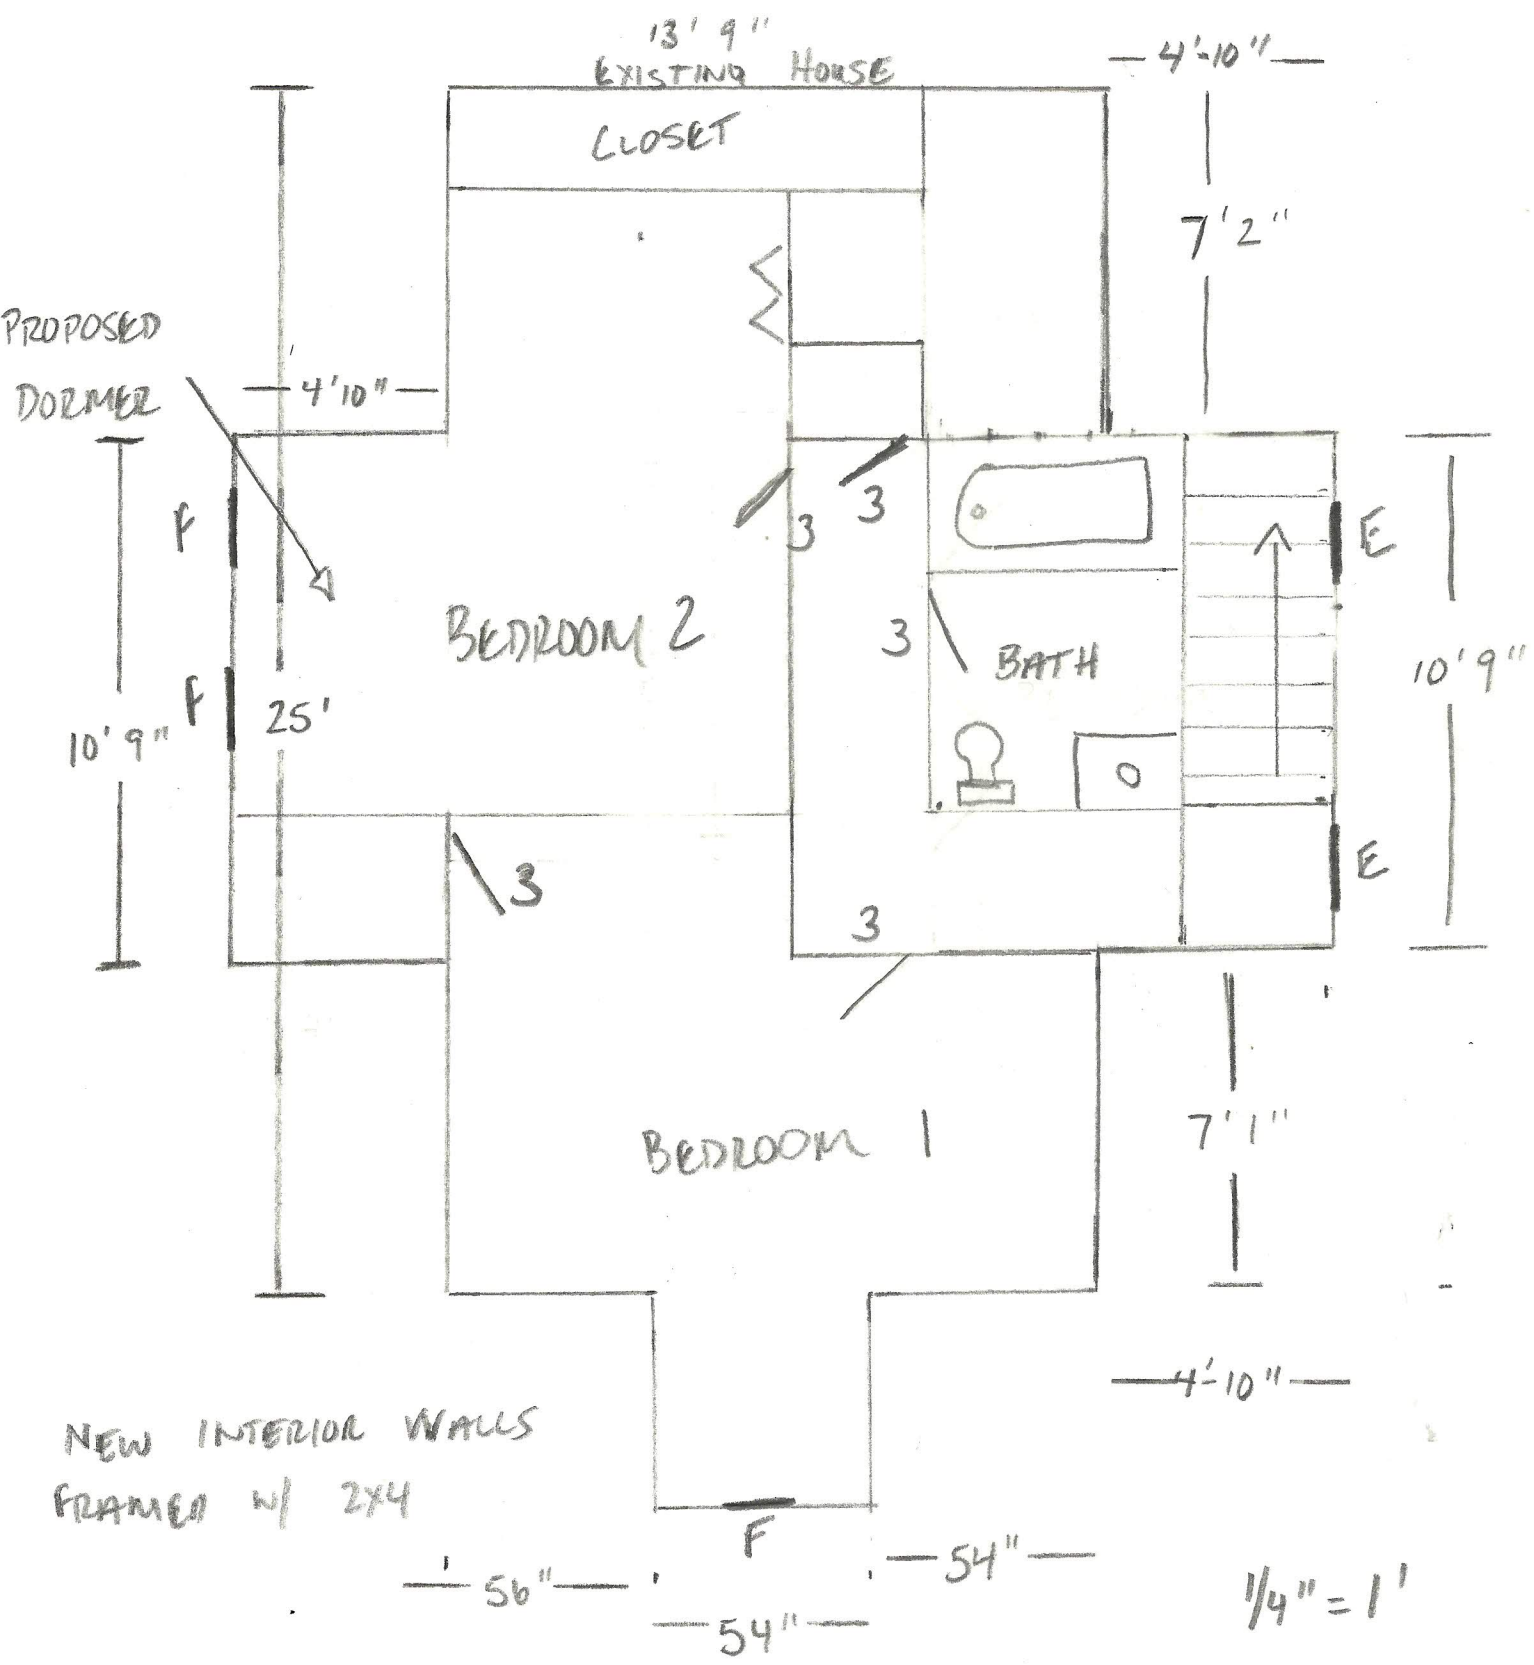 13' 9"
EXISTING HOUSE
4'-10"
CLOSET
7'2"
PROPOSED
DORMER
4'10"
F
3
3
E
BEDROOM 2
3
BATH
10'9"
F
25'
10'9"
3
E
3
7'1"
BEDROOM 1
4'-10"
NEW INTERIOR WALLS
FRAMED W/ 2x4
F
54"
56"
54"
1/4" = 1'